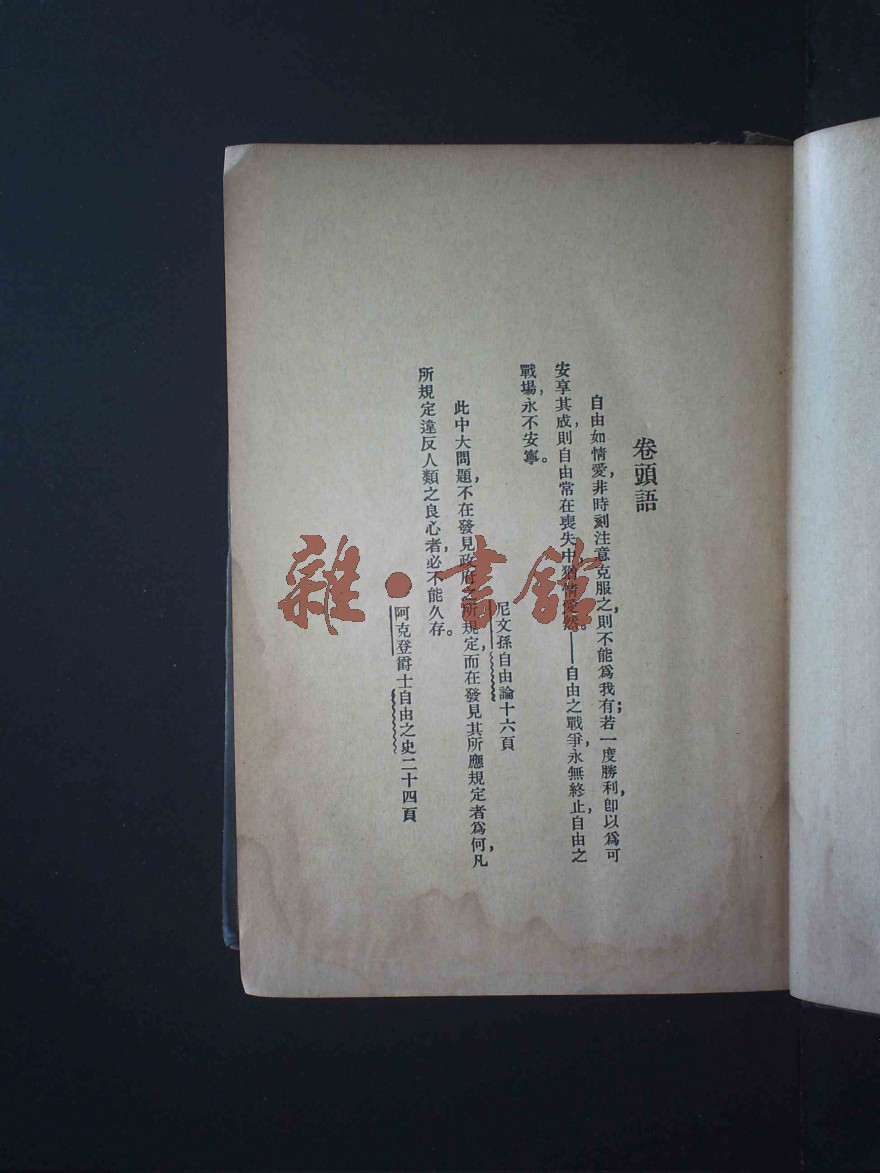 卷頭語
自由如情愛，非時刻注意克服之，則不能爲我有；若一度勝利，卽以爲可
安享其成，則自由常在喪失中，猶情愛然。——自由之戰爭，永無終止，自由之
戰場，永不安寧。
尼文孫自由論十六頁
此中大問題，不在發見政府之所規定，而在發見其所應規定者爲何，凡
所規定違反人類之良心者，必不能久存。
阿克登爵士自由之史二十四頁
雜·書館